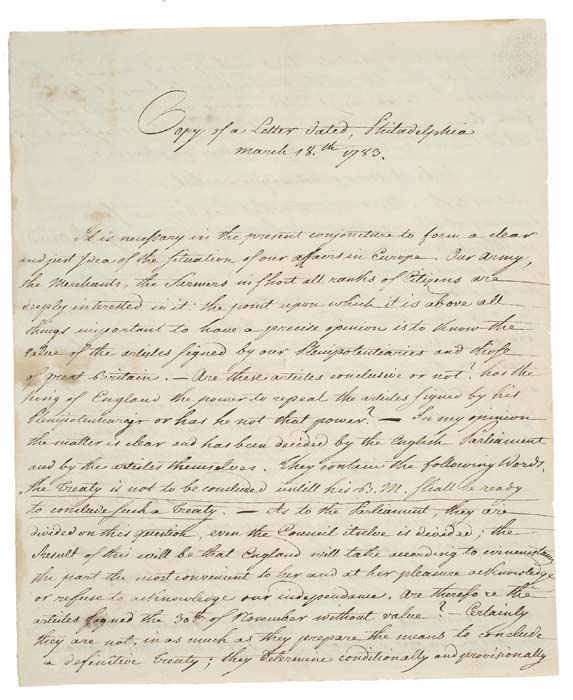 Copy of a Letter dated, Philadelphia
March 18.th 1783.
It is necessary in the present conjoncture to form a clear
and just Idea of the Situation of our affairs in Europe. Our Army,
the Merchants, the Farmers in short all ranks of Citizens are
deeply interested in it: the point upon which it is above all
things important to have a precise opinion is to know the
value of the articles signed by our Plenipotentiaries and those
of great Britain. — Are these articles conclusive or not? has the
King of England the power to repeal the articles signed by his
Plenipotentiary or has he not that power? — In my opinion
the matter is clear and has been decided by the English Parliament
and by the articles themselves. They contain the following Words.
the Treaty is not to be concluded untill his B. M. shall be ready
to conclude such a Treaty. — As to the Parliament, they are
divided on this question, even the Council itselve is divided; the
result of this will be that England will take according to circumstances
the part the most convenient to her and at her pleasure acknowledge
or refuse to acknowledge our independance. Are therefore the
articles signed the 30th of November without value? — Certainly
they are not, in as much as they prepare the means to conclude
a definitive Treaty; they determine conditionally and provisionally